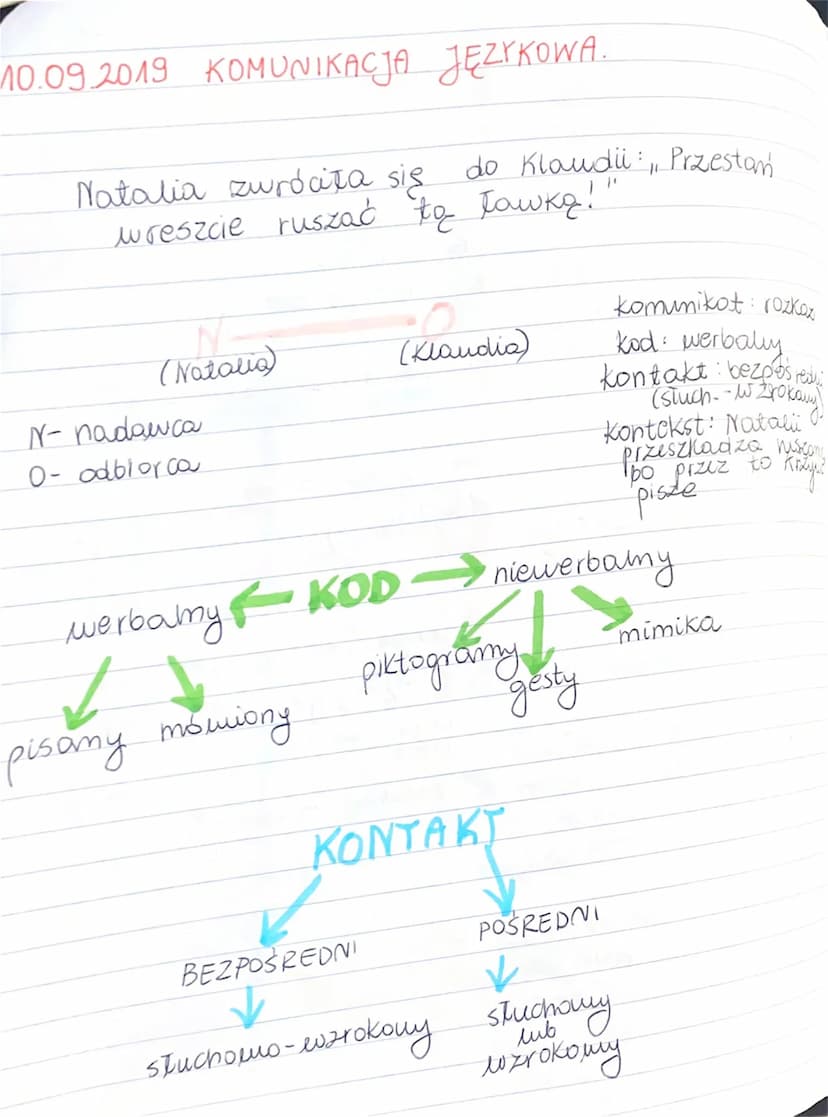 10.09.2019 KOMUNIKACJA JĘZYKOWA.
Natalia zwróciła się do Klaudii: „Przestań
wreszcie ruszać tą ławką!"
N O
(Natalia) (Klaudia)
N- nadawca
O- odbiorca
komunikat: rozkaz
kod: werbalny
kontakt: bezpośredni
(słuch.-wzrokowy)
kontekst: Natalii
przeszkadza
bo przez to
pisze
werbalny KOD niewerbalny
pisany mówiony piktogramy gesty mimika
KONTAKT
BEZPOŚREDNI POŚREDNI
słuchowo-wzrokowy
słuchowy
lub
wzrokowy